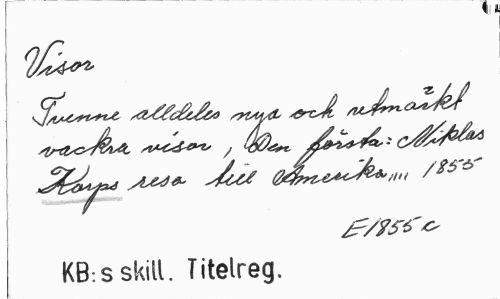 Visor
Tvenne alldeles nya och utmärkt
vackra visor, Den första: Niklas
Korps resa till Amerika,,,, 1855
E1855c
KB:s skill. Titelreg.